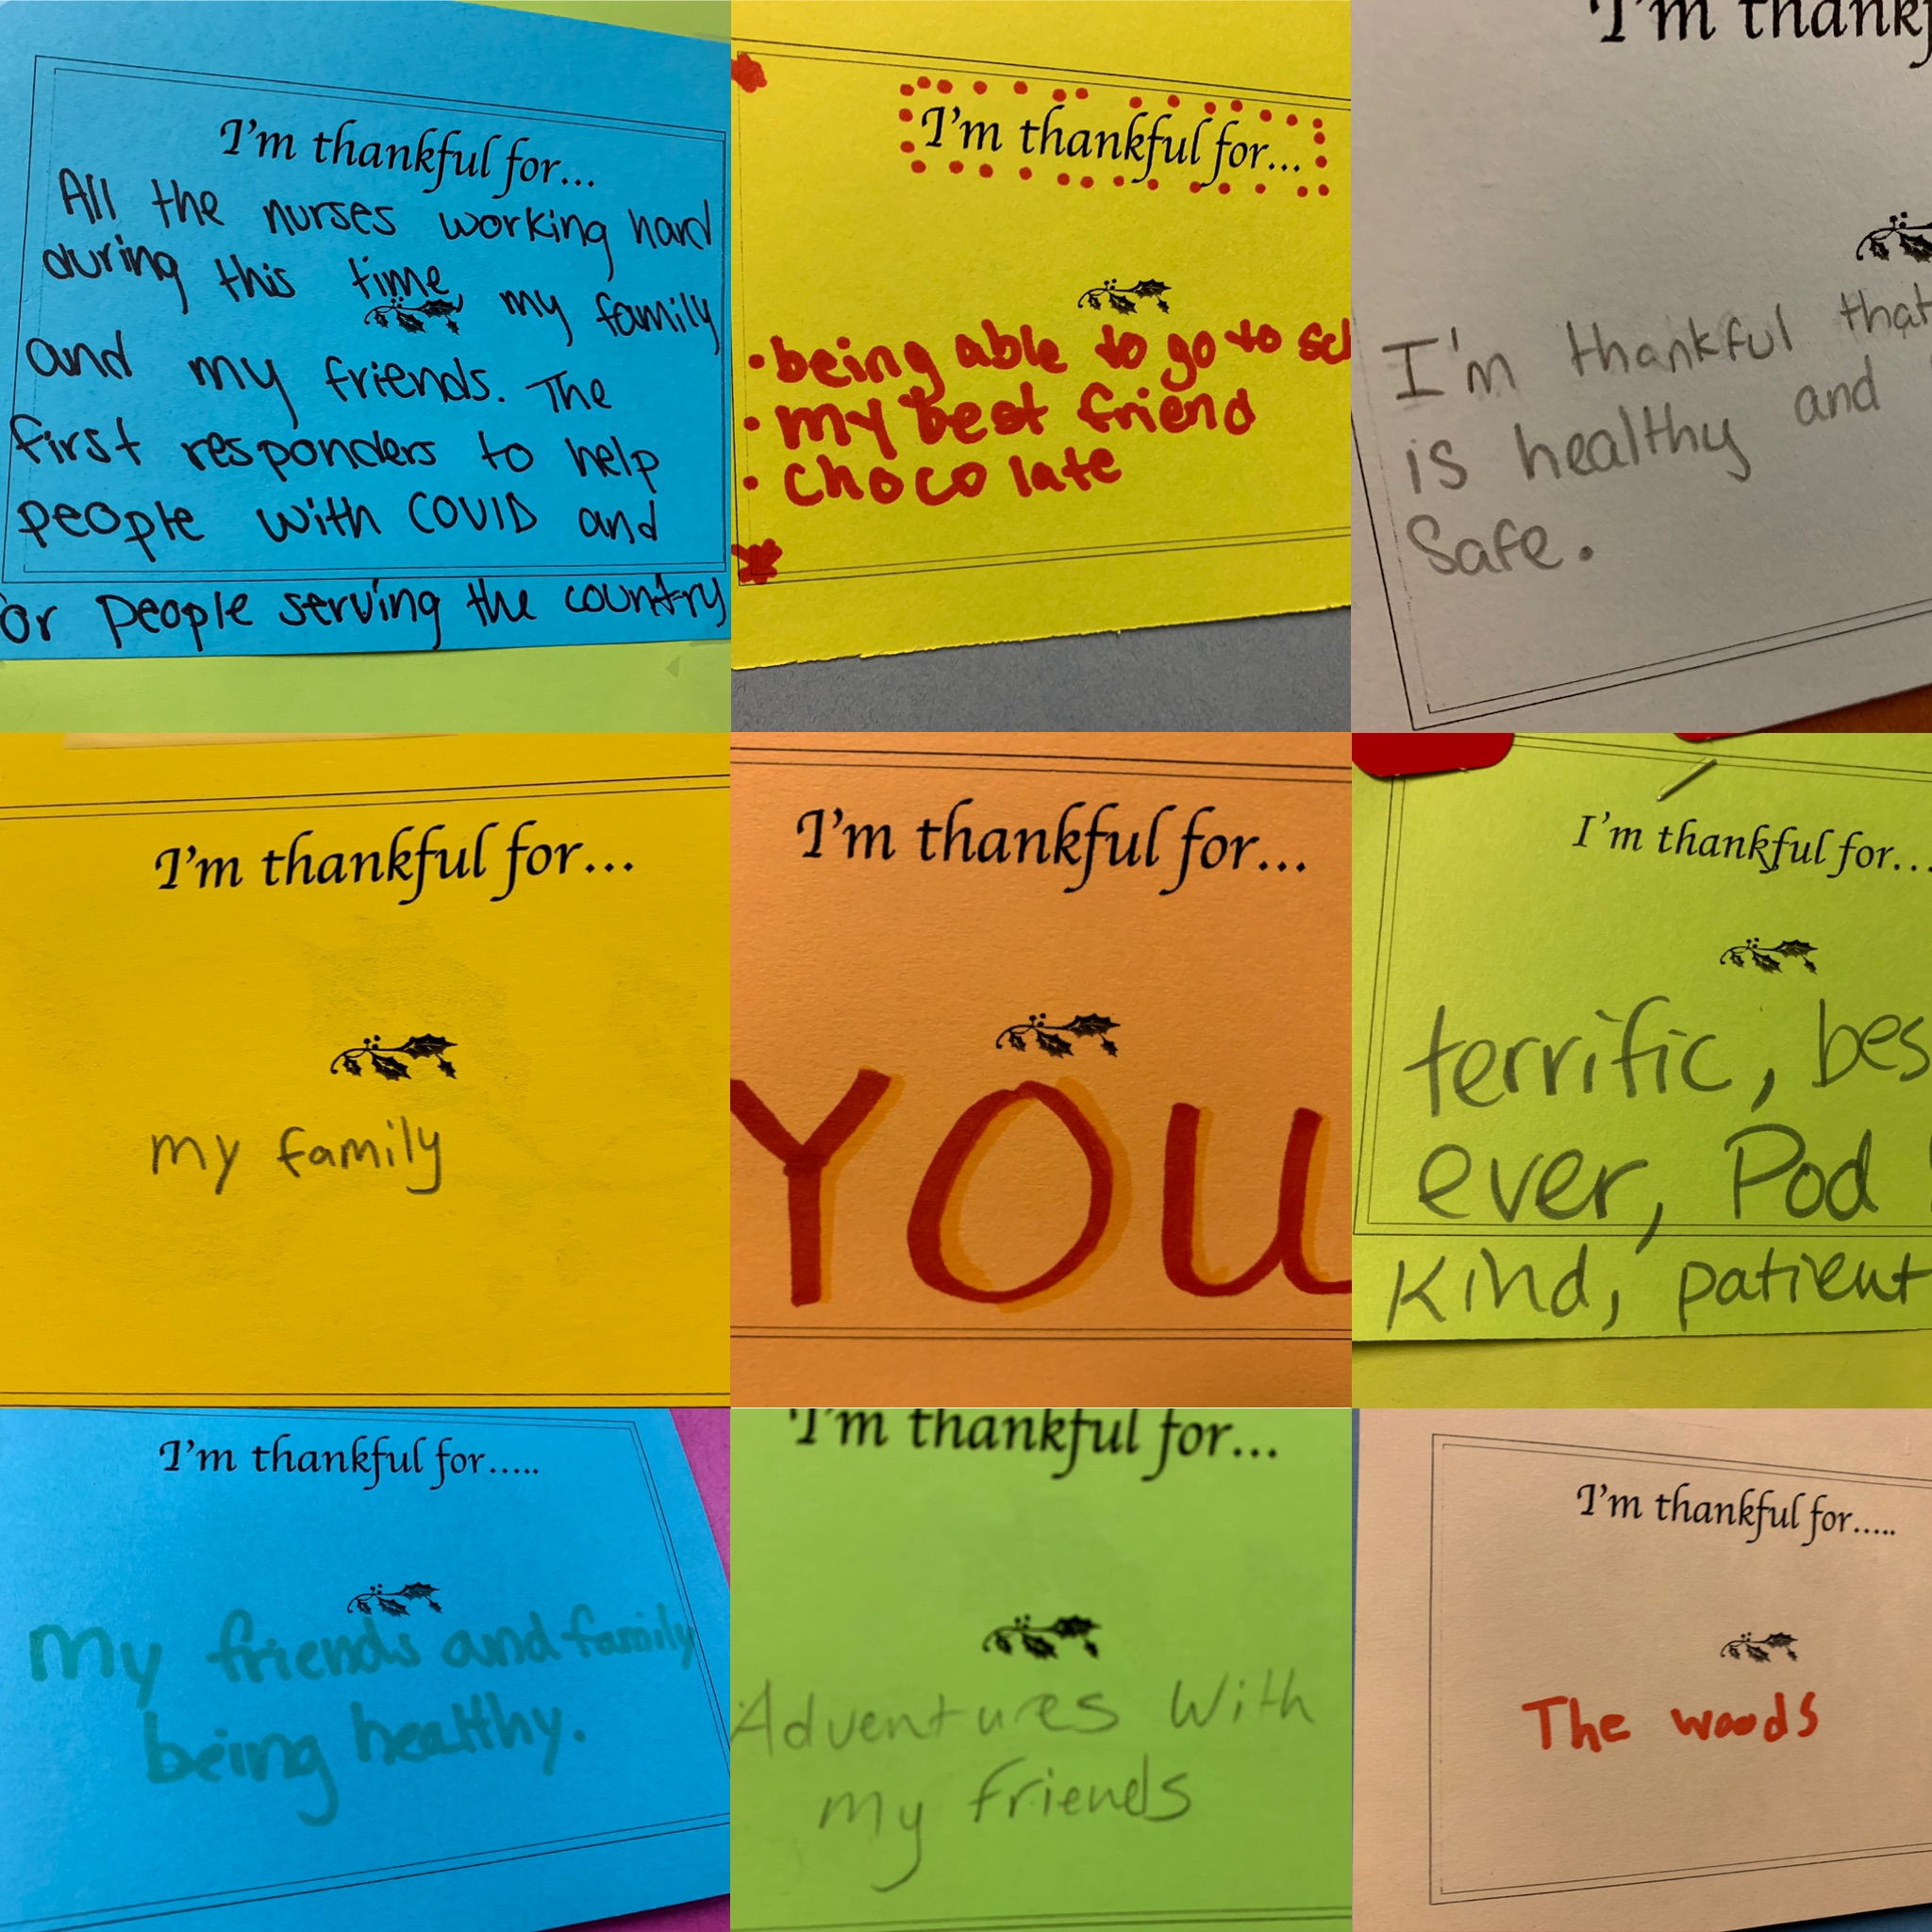 I'm thankful for...
All the nurses working hard
during this time, my family
and my friends. The
first responders to help
people with COVID and
or people serving the country
I'm thankful for...
• being able to go to
• my best friend
• chocolate
I'm
I'm thankful that
is healthy and
Safe.
I'm thankful for...
my family
I'm thankful for...
YOU
I'm thankful for...
terrific,
ever, Pod
Kind, patient
I'm thankful for.....
my friends and family
being healthy.
I'm thankful for...
Adventures With
my friends
I'm thankful for.....
The woods